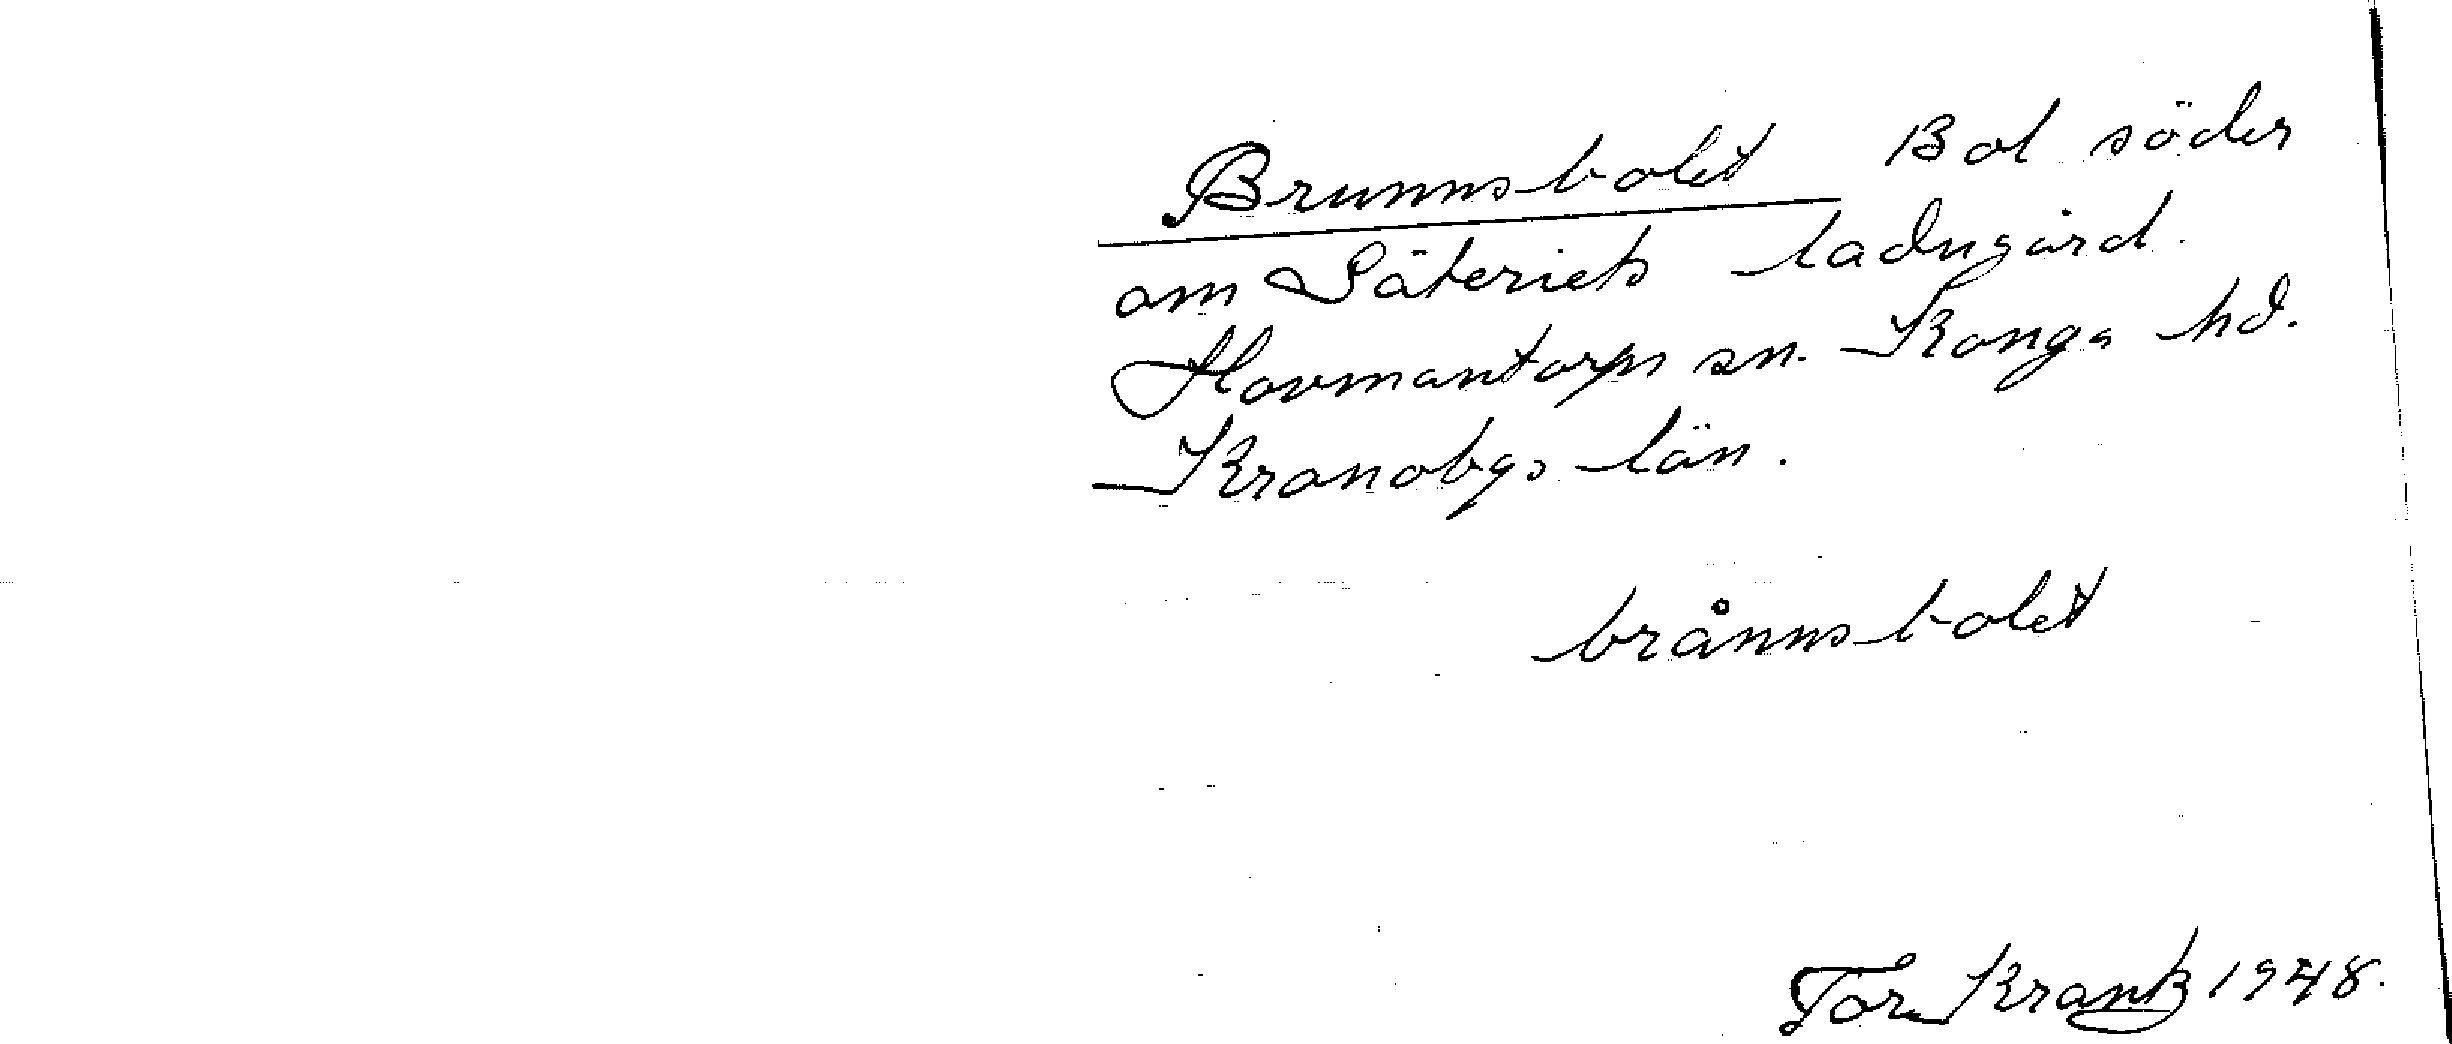 Brunnsbolet Bol söder
om Säteriets ladugård.
Hovmantorps sn. Konga hd.
Kronobgs län.
brånnsbolet
Tor Krantz 1948.